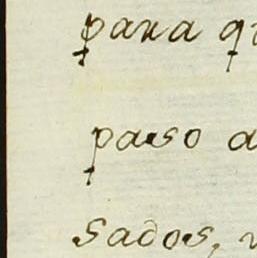 para q
paso a
sados,